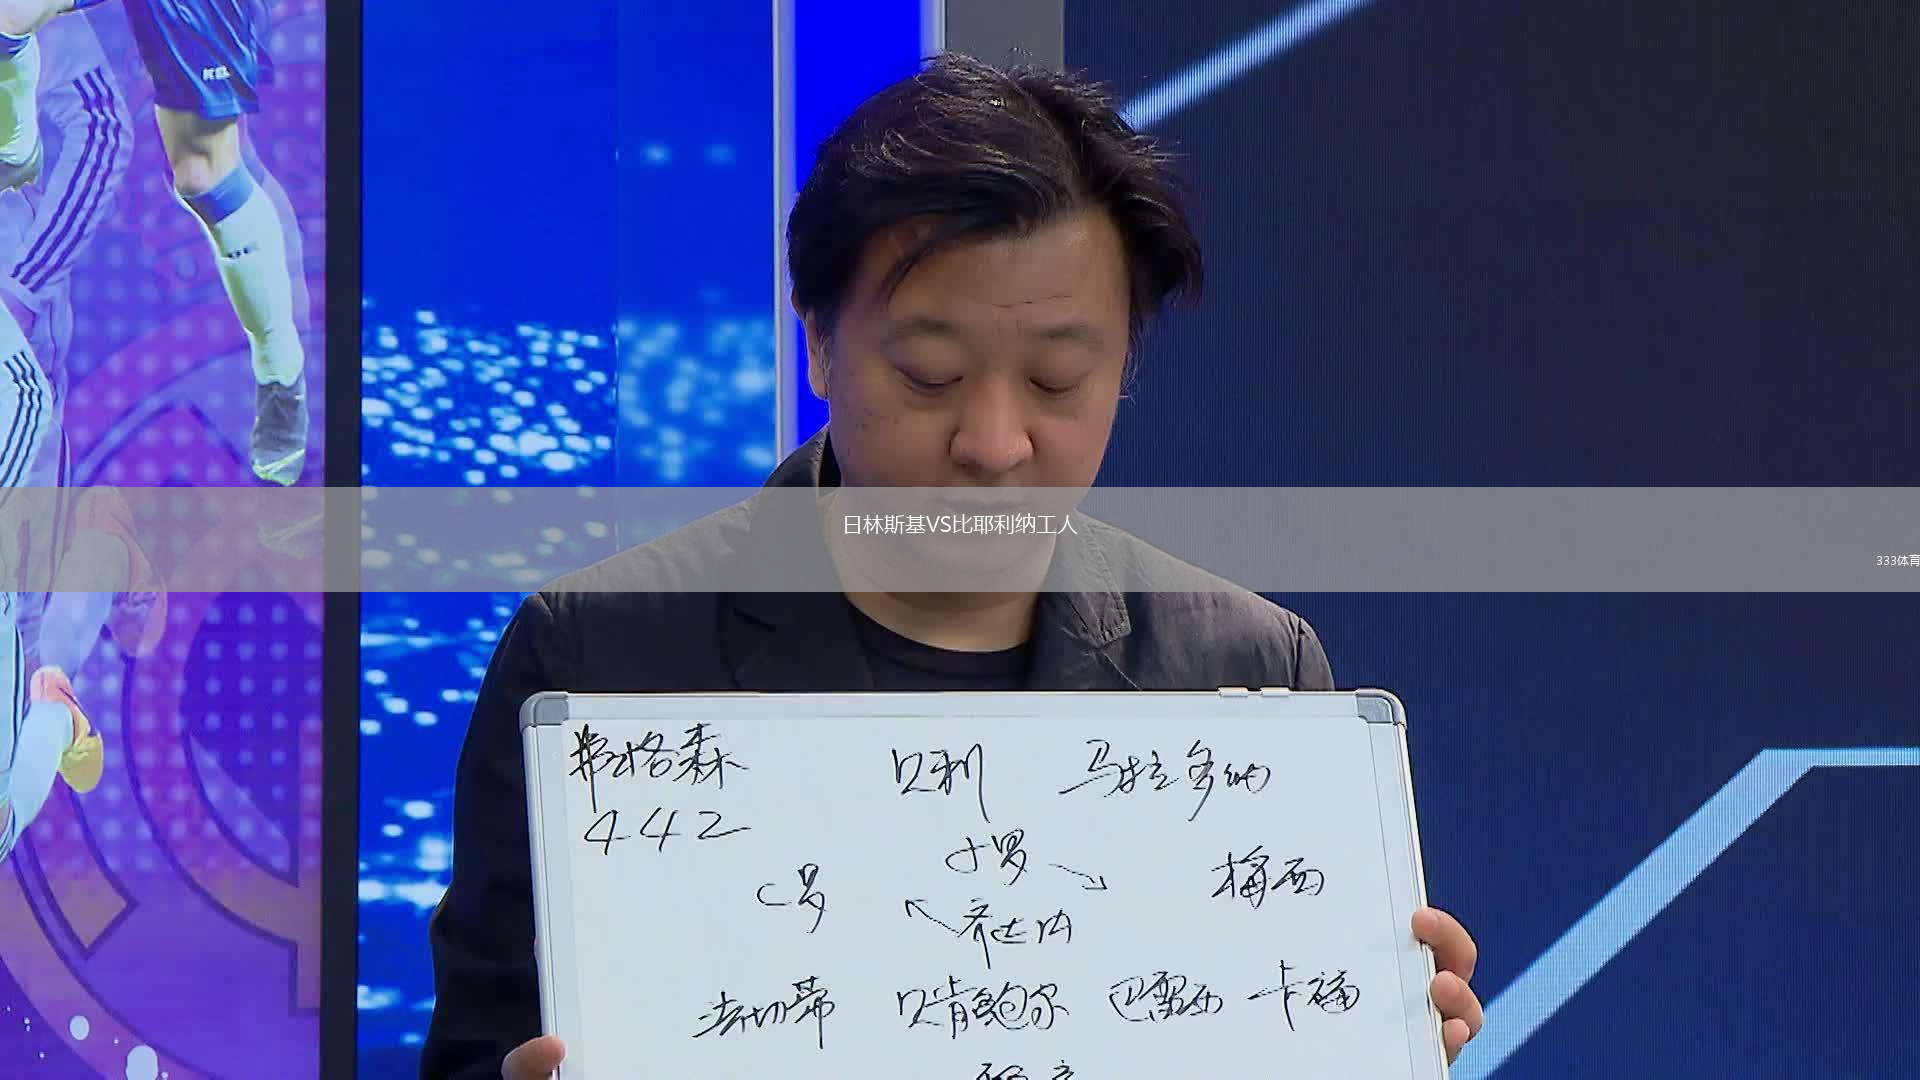 KEL
日林斯基VS比耶利纳工人
333体育
弗格森 贝利 马拉多纳
442
小罗
C罗 梅西
齐达内
法切蒂 贝肯鲍尔 巴雷西 卡福